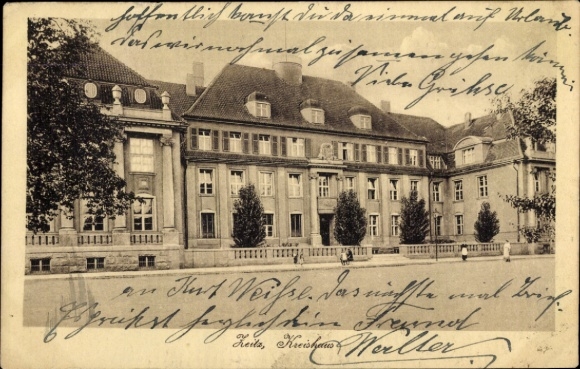 hoffentlich kannst du da einmal auf Urlaub.
das wir nochmal zusammen gehen können
Viele Grüße
Walter.
an Kurt Weiße. das nächste mal Brief
Es grüßt herzlich dein Freund
Walter.
Zeitz, Kreishaus